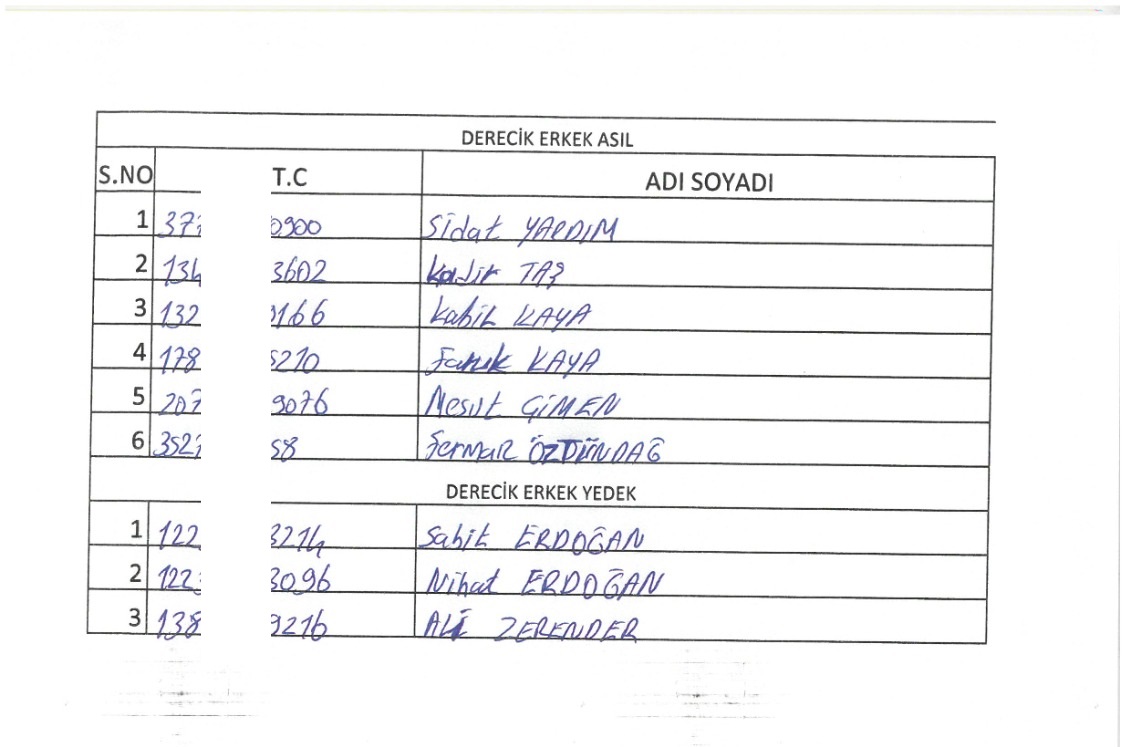 DERECİK ERKEK ASIL
S.NO T.C ADI SOYADI
1 37 0900 Sidat YARDIM
2 134 3602 Kadir TAŞ
3 132 0166 Kabil KAYA
4 178 5210 Faruk KAYA
5 207 9076 Mesut ÇİMEN
6 352 58 ÖZTÜNDAĞ
DERECİK ERKEK YEDEK
1 122 3214 Sabit ERDOĞAN
2 122 3096 Nihat ERDOĞAN
3 138 9216 Ali ZERENDER